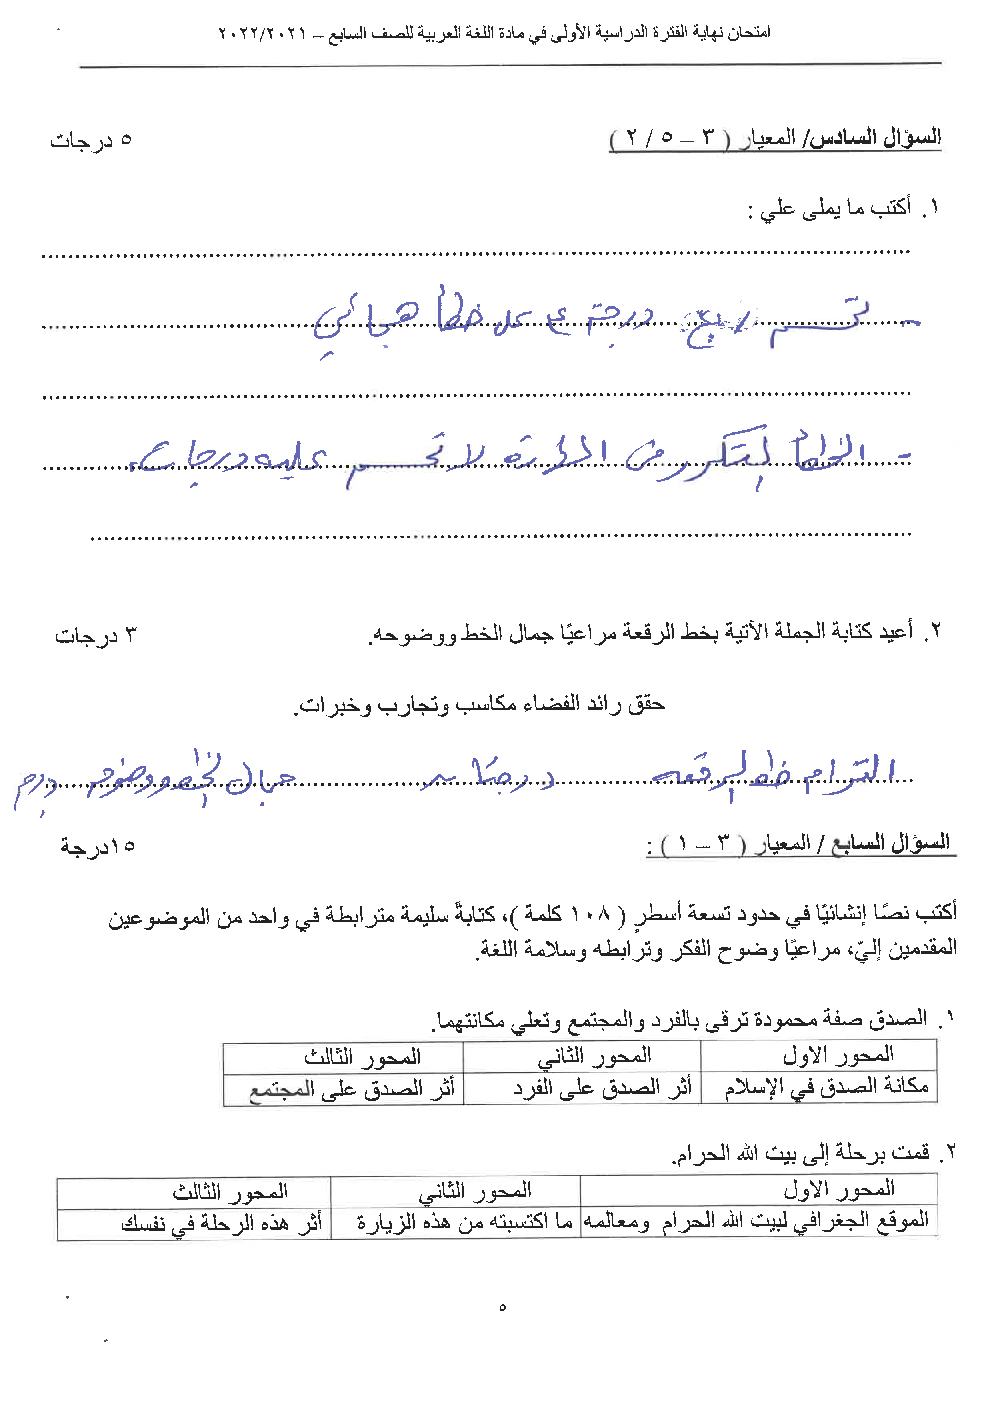 امتحان نهاية الفترة الدراسية الأولى في مادة اللغة العربية للصف السابع – ٢٠٢٢/٢٠٢١
السؤال السادس/ المعيار ( ٣ – ٥ / ٢ ) ٥ درجات
١. أكتب ما يملى علي :
- تحسم ربع درجة ع كل خطأ هجائي
- الخطأ المتكرر في المفردة لا تحسم عليه درجات.
٢. أعيد كتابة الجملة الآتية بخط الرقعة مراعيًا جمال الخط ووضوحه. ٣ درجات
حقق رائد الفضاء مكاسب وتجارب وخبرات.
التزام خط الرقعة درجتان جمال الخط ووضوحه درجة
السؤال السابع / المعيار ( ٣ – ١ ) : ١٥درجة
أكتب نصًا إنشائيًا في حدود تسعة أسطرٍ ( ١٠٨ كلمة )، كتابةً سليمة مترابطة في واحد من الموضوعين
المقدمين إليّ، مراعيًا وضوح الفكر وترابطه وسلامة اللغة.
١. الصدق صفة محمودة ترقى بالفرد والمجتمع وتعلي مكانتهما.
المحور الاول المحور الثاني المحور الثالث
مكانة الصدق في الإسلام أثر الصدق على الفرد أثر الصدق على المجتمع
٢. قمت برحلة إلى بيت الله الحرام.
المحور الاول المحور الثاني المحور الثالث
الموقع الجغرافي لبيت الله الحرام ومعالمه ما اكتسبته من هذه الزيارة أثر هذه الرحلة في نفسك
٥